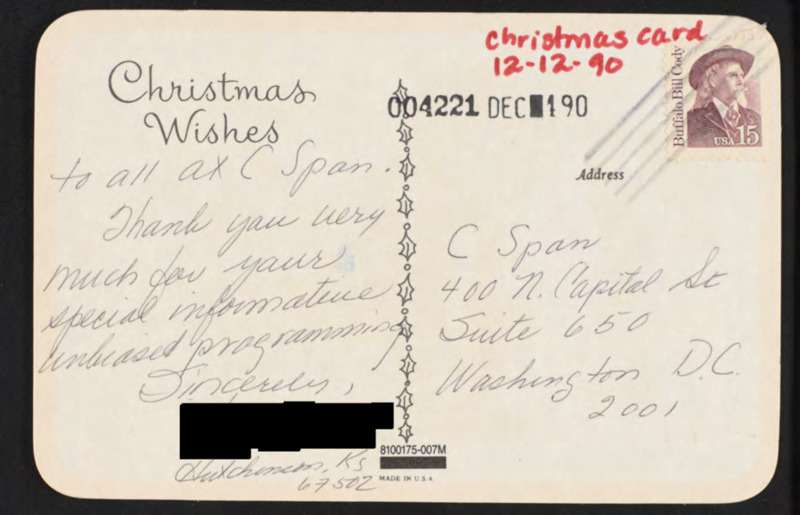 Christmas
Wishes
to all at C Span.
Thank you very
much for your
special informative
unbiased programming
Sincerely,
Hutchinson, Ks
67502
christmas card
12-12-90
004221 DEC 190
Buffalo Bill Cody
USA 15
Address
C Span
400 N. Capital St
Suite 650
Washington D.C.
2001
8100175-007M
MADE IN U.S.A.